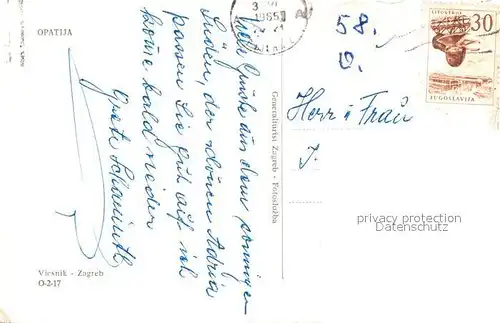 OPATIJA
Viele Grüße aus dem sonnigen
Süden, der schönen Adria
passen Sie gut auf ich
komme bald wieder
Vjesnik - Zagreb
O-2-17
Generalturist Zagreb - Fotoslužba
3 VI
1965
58.
V.
LITOSTROJ
30
JUGOSLAVIJA
Herr u Frau
J.
privacy protection
Datenschutz